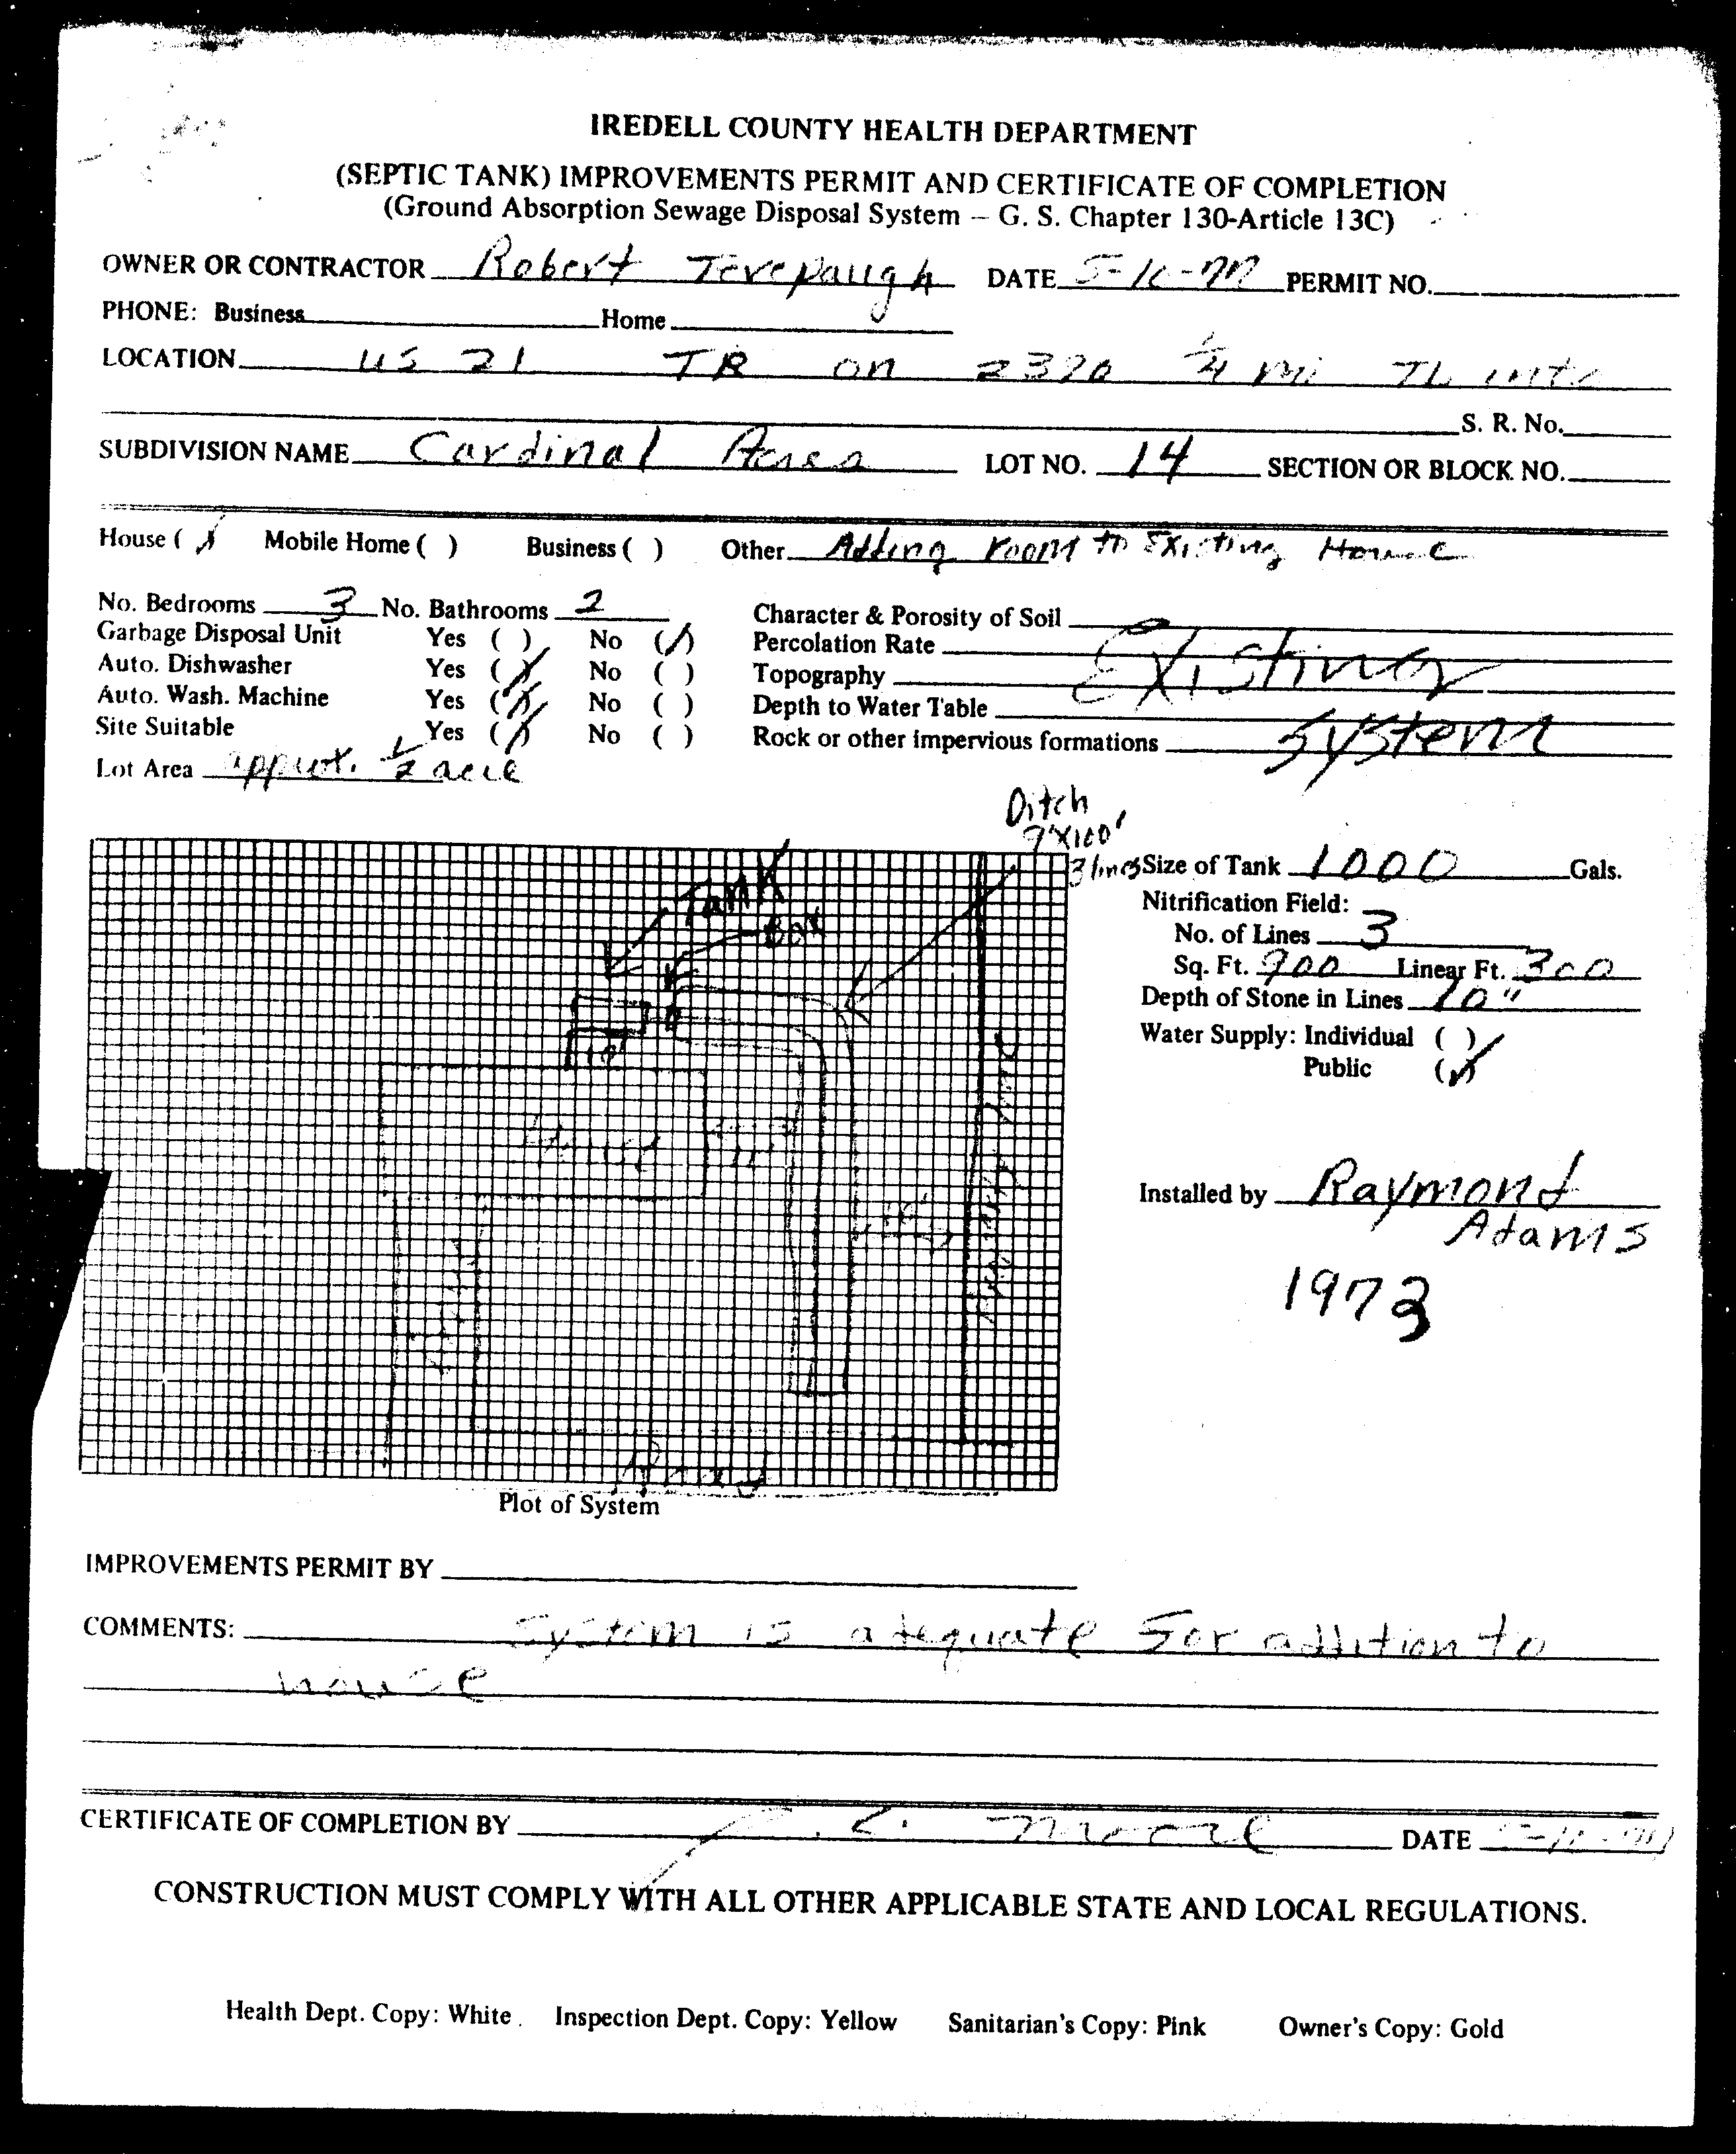 IREDELL COUNTY HEALTH DEPARTMENT
(SEPTIC TANK) IMPROVEMENTS PERMIT AND CERTIFICATE OF COMPLETION
(Ground Absorption Sewage Disposal System — G. S. Chapter 130-Article 13C)
OWNER OR CONTRACTOR Robert Tevepaugh DATE PERMIT NO.
PHONE: Business Home
LOCATION US 21 TR on 2320 1/4 mi TL into
S. R. No.
SUBDIVISION NAME Cardinal Acres LOT NO. 14 SECTION OR BLOCK NO.
House (✓) Mobile Home ( ) Business ( ) Other Adding room to Existing House
No. Bedrooms 3 No. Bathrooms 2 Character & Porosity of Soil
Garbage Disposal Unit Yes ( ) No (✓) Percolation Rate Existing
Auto. Dishwasher Yes (✓) No ( ) Topography
Auto. Wash. Machine Yes (✓) No ( ) Depth to Water Table System
Site Suitable Yes (✓) No ( ) Rock or other impervious formations
Lot Area approx. 1/2 acre
Ditch
3 lines
Tank
Box
10'
Size of Tank 1000 Gals.
Nitrification Field:
No. of Lines 3
Sq. Ft. 900 Linear Ft. 300
Depth of Stone in Lines 10"
Water Supply: Individual ( )
Public (✓)
Installed by Raymond
Adams
1973
Plot of System
IMPROVEMENTS PERMIT BY
COMMENTS: System is adequate for addition to
house
CERTIFICATE OF COMPLETION BY Moore DATE
CONSTRUCTION MUST COMPLY WITH ALL OTHER APPLICABLE STATE AND LOCAL REGULATIONS.
Health Dept. Copy: White Inspection Dept. Copy: Yellow Sanitarian's Copy: Pink Owner's Copy: Gold